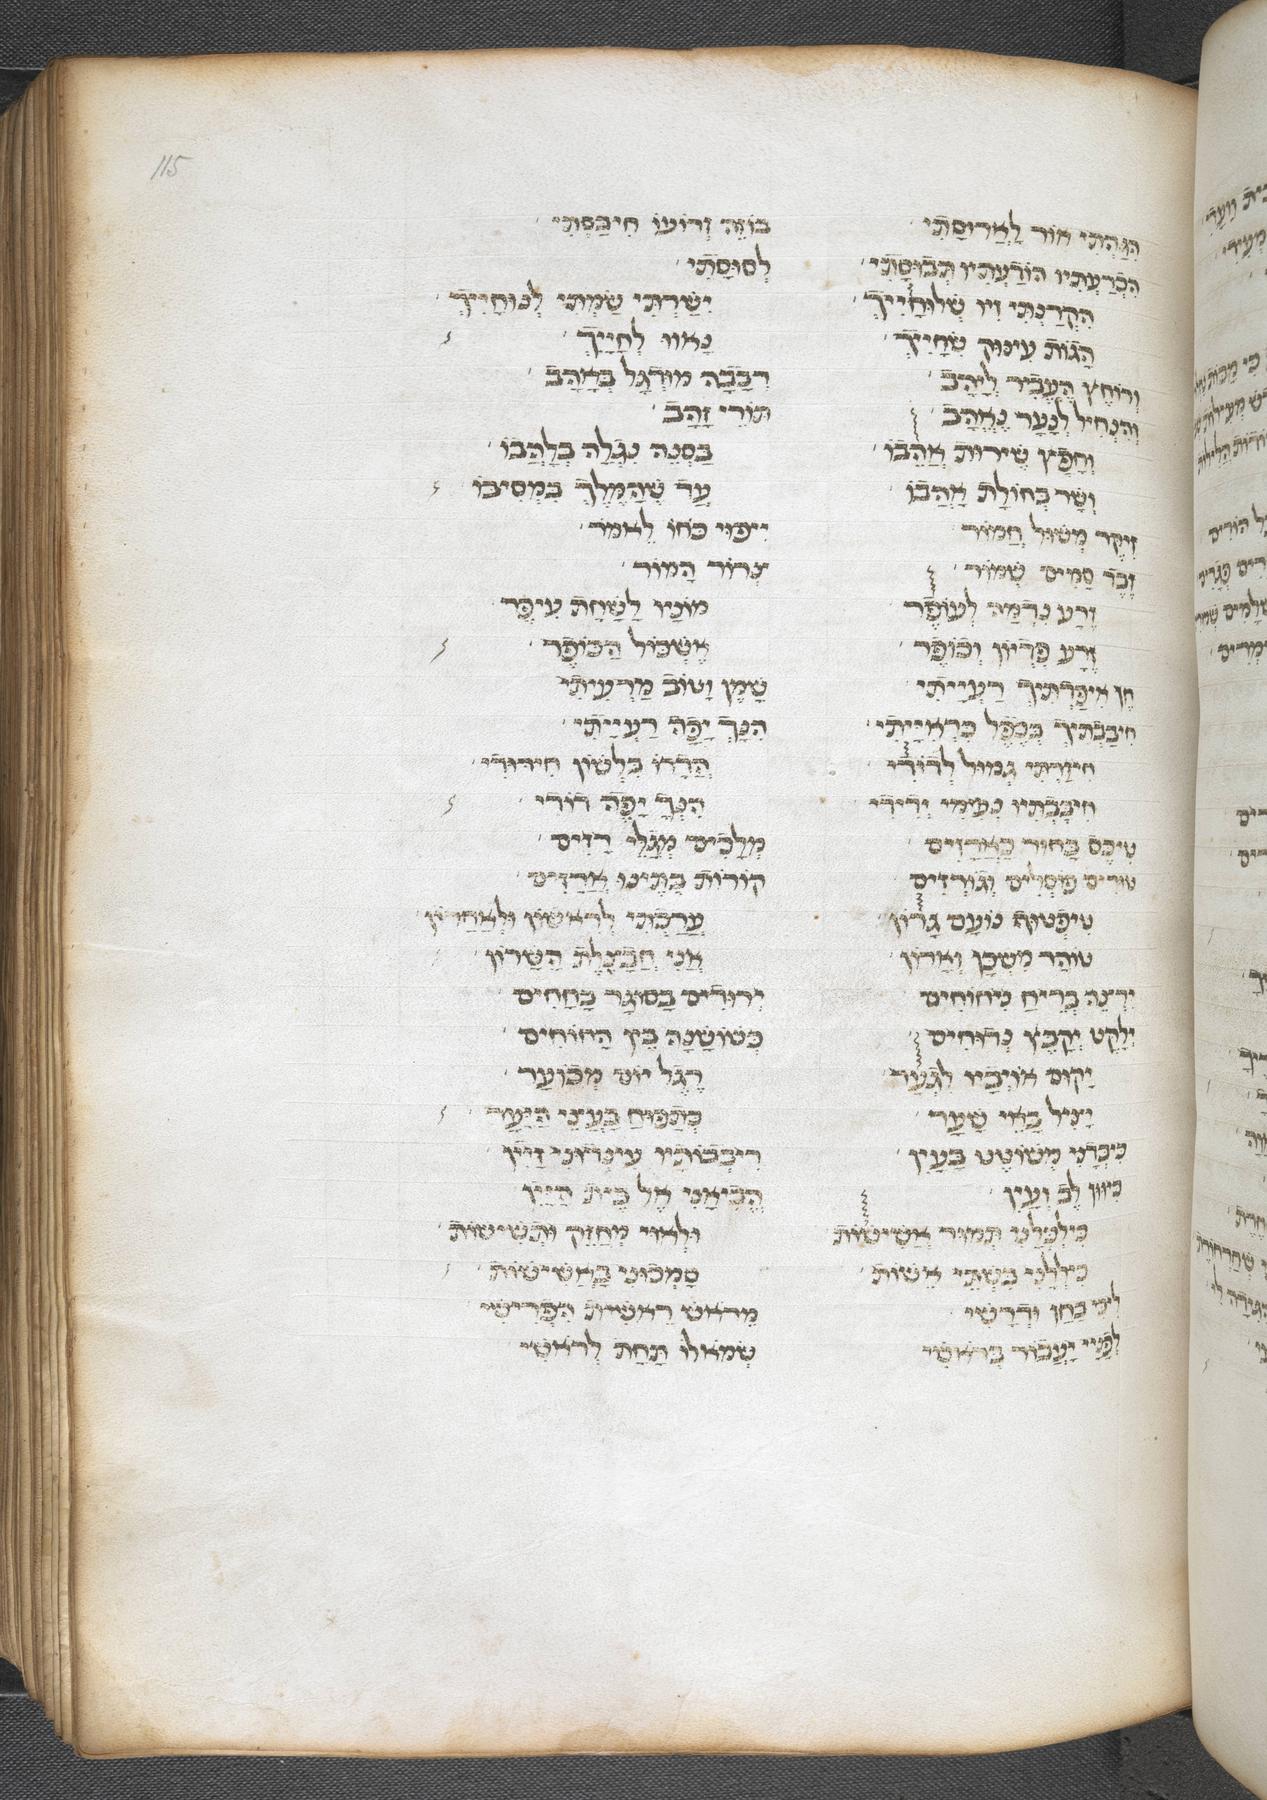 115
הִגַּהְתִּי אוֹר לָאֲרוּסָתִי בּוֹזֶה זְרוֹעוֹ חִיבַּסְתִּי
הִכְרַעְתִּיו הוֹרַעְתִּיו תְּבוּסָתִי לְסוּסָתִי
הִקְרַנְתִּי זִיו שְׁלוּחָיִיךְ יִשַּׁרְתִּי שַׂמְתִּי לְנוּחָיִיךְ
הָגוֹת עִינּוּק שִׂחָיִיךְ נָאווּ לְחָיַיִךְ
וְרוֹחֶץ הֶעֱבִיר לַיָּהַב רְבָבָה מוּרְגָּל בְּאַהַב
וְהִנְחִיל לְנַעַר נֶאֱהָב תּוֹרֵי זָהָב
וְחָפַץ שִׁירוּת אֲהֵבוֹ בַּסְּנֶה נִגְלָה בְּלַהֲבוֹ
וְשָׁר בְּחוֹלַת אָהֲבוֹ עַד שֶׁהַמֶּלֶךְ בִּמְסִיבּוֹ
זִיקֶר מְשׁוּל חֲמוֹר יִיפּוּי כֹּחוֹ לֵאמֹר
זֶבֶד סַמִּים שָׁמוֹר צְרוֹר הַמּוֹר
זֶרַע נִדְמָה לְעוֹפֶר מוֹנָיו לַשַּׁחַת עִיפֵּר
זֶרַע פִּדְיוֹן וְכוֹפֶר אֶשְׁכּוֹל הַכּוֹפֶר
חֵן אִיפַּדְתִּיךְ רַעְיָיתִי שָׁמֵן וָטוֹב מַרְעִיתִי
חִיבַּבְתִּיךְ בְּכֶפֶל כִּרְאִיָּיתִי הִנָּךְ יָפָה רַעְיָתִי
חִיזַּרְתִּי גְּמוּל לְדוֹדִי הַדָּרוֹ בִלְשׁוֹן חִידּוּדִי
חִיבַּבְתִּיו נְעִימִי יְדִידִי הִנְּךָ יָפֶה דוֹדִי
טִיכֵּס בָּחוּר כַּאֲרָזִים מְלָכִים מְגַלֵּי רָזִים
טוּרִים פּוֹסְלִים וְגוֹרְזִים קוֹרוֹת בָּתֵּינוּ אֲרָזִים
טִיפְטוּף נוֹעַם גָּרוֹן עֲרַבְתִּי לְרִאשׁוֹן וּלְאַחֲרוֹן
טוֹהַר מִשְׁכָּן וְאָרוֹן אֲנִי חֲבַצֶּלֶת הַשָּׁרוֹן
יִרְצֶה כְּרֵיחַ נִיחוֹחִים יְרוּדִים בְּסוּגַר בַּחָחִים
יְלַקֵּט יְקַבֵּץ נִדּוּחִים כְּשׁוֹשַׁנָּה בֵּין הַחוֹחִים
יָקוּם אוֹיְבָיו לִגְעַר רֶגֶל יוֹם מְבוֹעָר
יַצִּיל בָּאֵי שַׁעַר כְּתַפּוּחַ בַּעֲצֵי הַיַּעַר
כִּיבְּדַנִי מְשׁוֹטֵט בְּעַיִן רִיבְבוֹתָיו עִינְּדוּנִי זַיִן
כִּיוּוּן לֵב וָעַיִן הֱבִיאַנִי אֶל בֵּית הַיַּיִן
כִּילְכְּלַנִי תְּמוּר אֲשִׁישׁוֹת וּלְאוּי מְחַזֵּק וּתְשִׁישׁוֹת
כִּילְלַנִי בִּשְׁתֵּי אִשּׁוֹת סַמְּכוּנִי בָּאֲשִׁישׁוֹת
לִיבִּי בָּחַן וּדְרָשִׁי מֵרֹאשׁ רֵאשִׁית הִפְרִישִׁי
לְפָנַיי יַעֲבוֹר בְּרֹאשִׁי שְׂמֹאלוֹ תַּחַת לְרֹאשִׁי